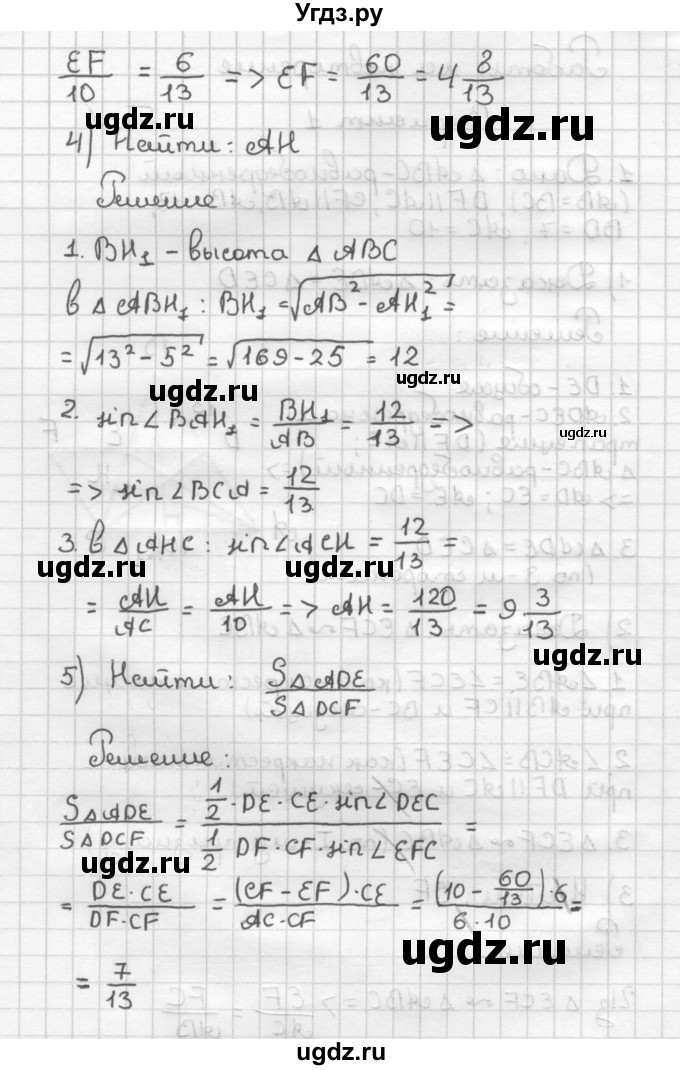 Угдз.ру
EF/10 = 6/13 => EF = 60/13 = 4 8/13
ugdz.ru ugdz.ru
4) Найти: AH
Решение
1. BH₁ - высота △ ABC
в △ ABH₁: BH₁ = √(AB² - AH₁²) =
= √(13² - 5²) = √(169 - 25) = 12
ugdz.ru ugdz.ru
2. sin∠BAH₁ = BH₁/AB = 12/13 =>
ugdz.ru
=> sin∠BCA = 12/13
3. в △ AHC: sin∠ACH = 12/13 =
ugdz.ru ugdz.ru
= AH/AC = AH/10 => AH = 120/13 = 9 3/13
ugdz.ru
5) Найти: S△ADE/S△DCF
Решение:
S△ADE/S△DCF = (1/2·DE·CE·sin∠DEC)/(1/2 DF·CF·sin∠EFC) =
ugdz.ru
= DE·CE/DF·CF = (CF - EF)·CE/AC·CF = (10 - 60/13)·6/6·10 =
ugdz.ru
= 7/13
ugdz.ru